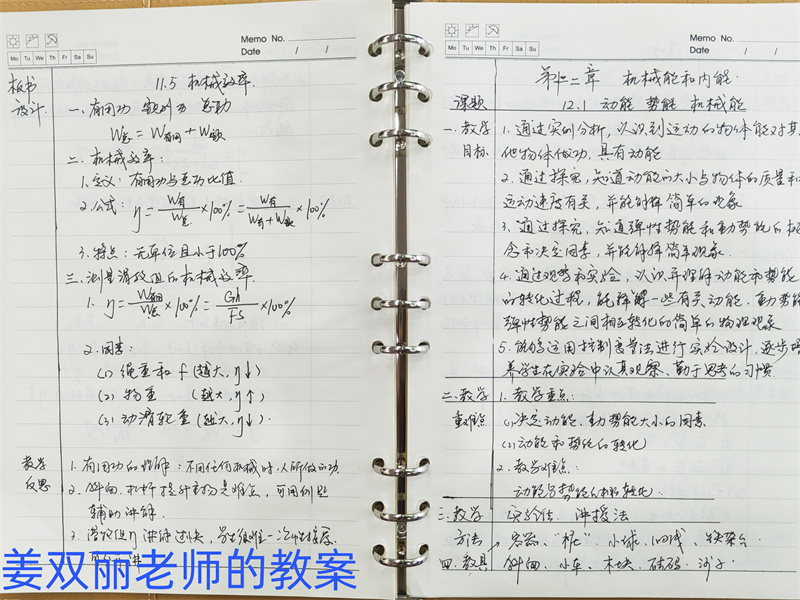 Memo No.
Date / /
Mo Tu We Th Fr Sa Su
板书
设计
11.5 机械效率.
一、有用功 额外功 总功
W总 = W有用 + W额
二、机械效率:
1.定义: 有用功与总功比值.
2.公式: η = W有/W总 ×100% = W有/(W有+W额) ×100%
3.特点: 无单位且小于100%
三、测量滑轮组的机械效率.
1. η = W有用/W总 ×100% = Gh/FS ×100%
2.因素:
(1) 绳重和 f (越大,η↓)
(2) 物重 (越大,η↑)
(3) 动滑轮重 (越大,η↓).
教学
反思
1. 有用功的理解: 不用任何机械时,人所做的功
2. 斜面、杠杆提升重物是难点, 可用例题
辅助讲解.
3. 滑轮组η讲解过快, 学生很难一次性接受.
姜双丽老师的教案
Memo No.
Date / /
Mo Tu We Th Fr Sa Su
第十二章 机械能和内能.
课题 12.1 动能 势能 机械能
一、教学
目标
1. 通过实例分析, 认识到运动的物体能对其
他物体做功, 具有动能
2. 通过探究, 知道动能的大小与物体的质量和
运动速度有关, 并能解释简单的现象
3. 通过探究, 知道弹性势能和重力势能的概
念和决定因素, 并能解释简单现象.
4. 通过观察和实验, 认识并理解动能和势能
的转化过程, 能解释一些有关动能、重力势能
弹性势能之间相互转化的简单的物理现象
5. 能够运用控制变量法进行实验设计, 逐步培
养学生在实验中认真观察、勤于思考的习惯
二、教学
重难点
1. 教学重点:
(1)决定动能、重力势能大小的因素
(2)动能和势能的转化
2. 教学难点:
动能与势能的相互转化.
三、教学
方法
实验法 讲授法
小球、细线、铁架台
四、教具
斜面、小车、木块、砝码、沙子